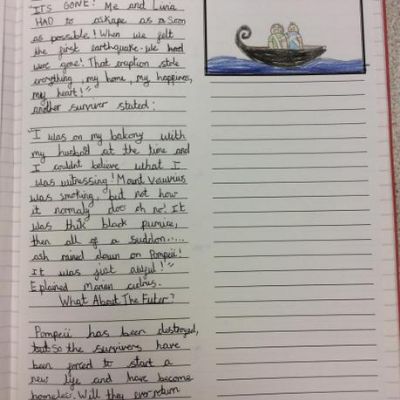 "IT'S GONE! Me and Livia
HAD to askape as a soon
as possible! When we felt
the first earthquake we hood
were gone! That eruption stole
everything, my home, my happines,
my heart!"
another surviver stated:
"I was on my balcony with
my husband at the time and
I couldnt believe what I
was witressing! Mount Vesuvius
was smoking, but not how
it normaly does oh no! It
was thik black pumice,
then all of a suddon.....
ash rained down on Pompeii!
It was just awful!"
Eplained Marian
What About The Futer?
Pompeii has been destroyed,
but So the survivers have
been forced to start a
new life and have become
homeless. Will they ever return